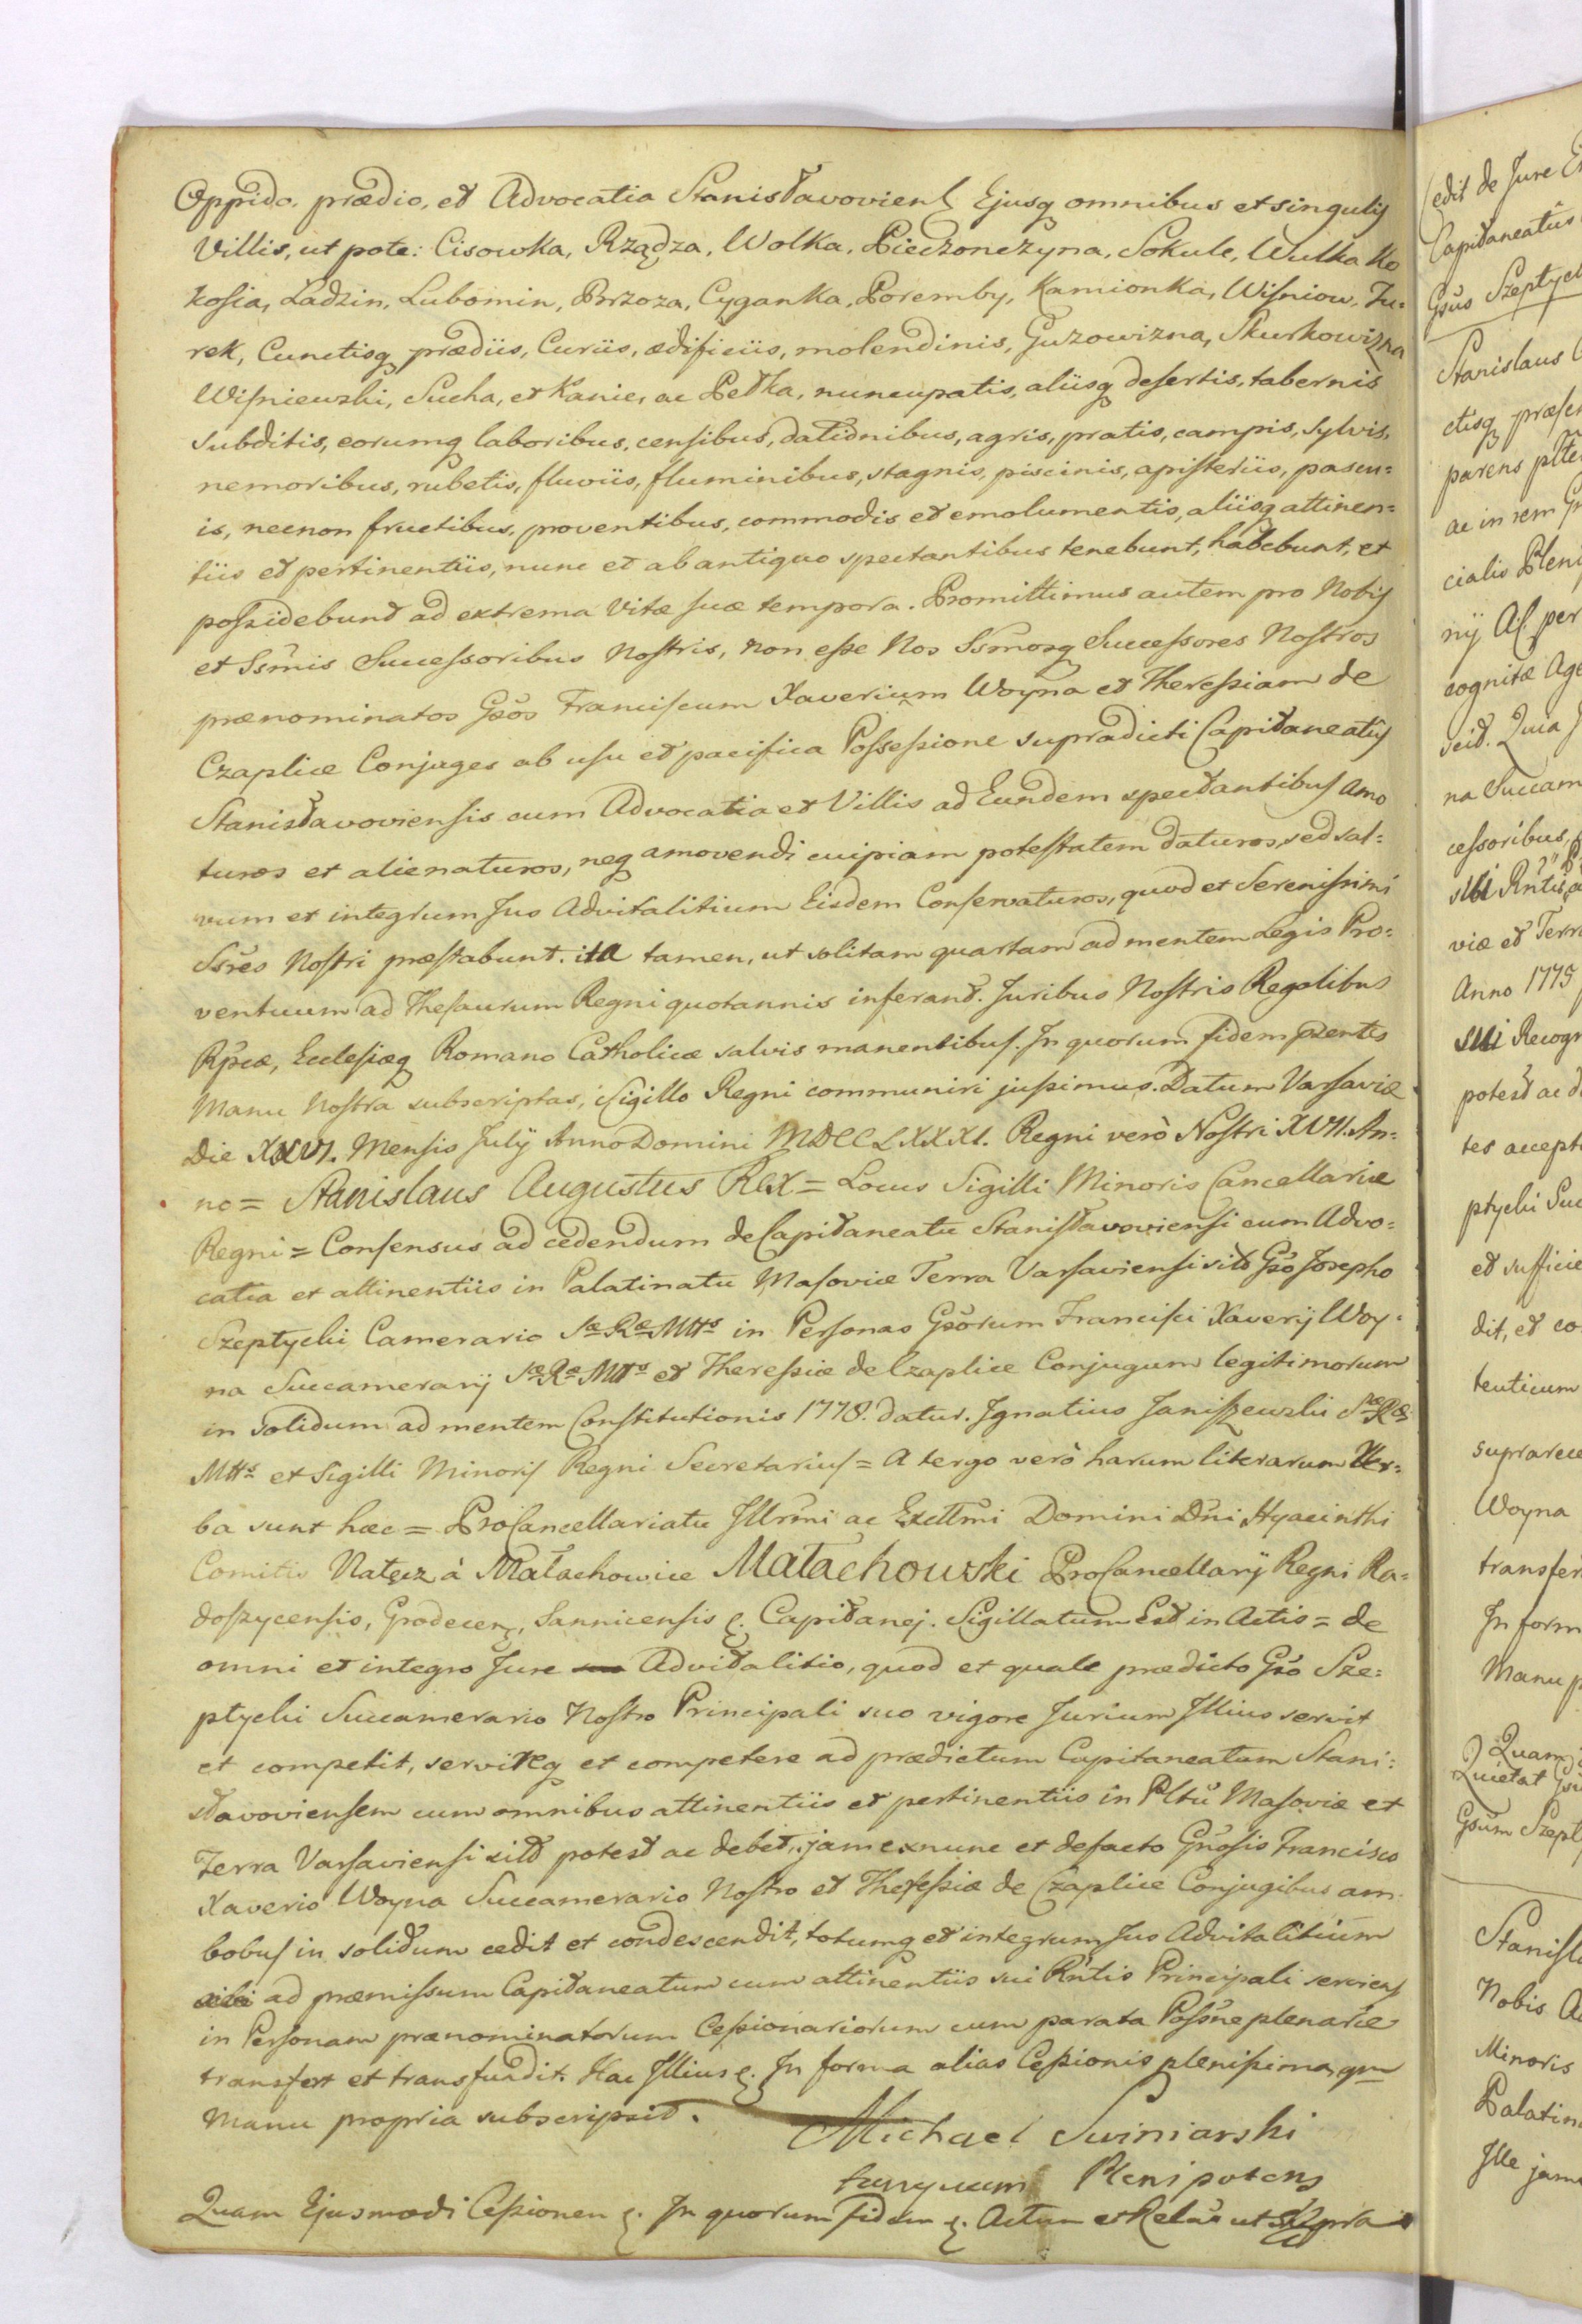 Oppido, prædio, et Advocatia Stanisławoviens Ejusq omnibus et singulis
Villis, ut pote: Cisowka, Rządza, Wolka, Pieczonczyna, Sokule, Wulka Ko
kosia, Ladzin, Lubomin, Brzoza, Cyganka, Poremby, Kamionka, Wisniow, Ju=
rek, Cunctisq prædiis, Curiis, ædificiis, molendinis, Guzowizna, Skurkowizna
Wisniewski, Sucha, et Kanie, ac Petka, nuncupatis, aliisq desertis, tabernis
Subditis, eorumq laboribus, censibus, dationibus, agris, pratis, campis, sylvis,
nemoribus, rubetis, fluviis, fluminibus, stagnis, piscinis, apisteriis, pascu=
is, necnon fructibus, proventibus, commodis et emolumentis, aliisq attinen=
tiis et pertinentiis, nunc et ab antiquo spectantibus tenebunt, habebunt, et
possidebunt ad extrema Vitæ suæ tempora. Promittimus autem pro Nobis
et Ssmis Successoribus Nostris, non esse Nos Ssmosq Successores Nostros
prænominatos Gsos Franciscum Xaverium Woyna et Theressiam de
Czaplice Conjuges ab usu et pacifica Possessione supradicti Capitaneatus
Stanisławoviensis cum Advocatia et Villis ad Eundem spectantibus amo
turos et alienaturos, neq amovendi cuipiam potestatem daturos, sed sal=
vum et integrum Jus Advitalitium Eisdem Conservaturos, quod et Serenissimi
Ssres Nostri præstabunt. ita tamen, ut solitam quartam ad mentem Legis Pro=
ventuum ad Thesaurum Regni quotannis inferant. Juribus Nostris Regalibus
Rpcæ, Ecclesiæq Romano Catholicæ salvis manentibus. In quorum fidem pæntes
Manu Nostra subscriptas, Sigillo Regni communiri jussimus. Datum Varsaviæ
Die XXVI. Mensis Julij Anno Domini MDCCLXXXI. Regni verò Nostri XVII. An=
no = Stanislaus Augustus Rex = Locus Sigilli Minoris Cancellariæ
Regni = Consensus ad cedendum de Capitaneatu Stanisławoviensi cum Advo=
catia et attinentiis in Palatinatu Masoviæ Terra Varsaviensi sito Gso Josepho
Szeptycki Camerario Sæ Ræ Mttis in Personas Gsorum Francisci Xaverij Woy=
na Succamerarij Sæ Ræ Mttis et Theressiæ de Czaplice Conjugum legitimorum
in Solidum ad mentem Constitutionis 1778. datur. Ignatius Janiszewski Sæ Ræ
Mttis et Sigilli Minoris Regni Secretarius = A tergo verò harum literarum Ver=
ba sunt hæc = ProCancellariatu Illrmi ac Exctlmi Domini Dni Hyacinthi
Comitis Nałęcz à Małachowice Małachowski ProCancellarij Regni Ra=
doszycensis, Grodecen, Sannicensis Capitanej. Sigillatum Est in Actis = de
omni et integro Jure Advitalitio, quod et quale prædicto Gso Sze=
ptycki Succamerario Nostro Principali suo vigore Jurium Illius servit
et competit, serviteq et competere ad prædictum Capitaneatum Stani=
sławoviensem cum omnibus attinentiis et pertinentiis in Pltu Masoviæ et
Terra Varsaviensi sito potest ac debet, jam exnunc et defacto Gnosis Francisco
Xaverio Woyna Succamerario Nostro et Theressiæ de Czaplice Conjugibus am
bobus in solidum cedit et condescendit, totumq et integrum Jus Advitalitium
sibi ad præmissum Capitaneatum cum attinentiis sui Rntis Principali serviens
in Personam prænominatorum Cessionariorum cum parata Possne plenarie
transfert et transfundit. Hac Illius In forma alias Cessionis plenissima, qm
Manu propria subscripsit.
Michael Swiniarski
tanquam Plenipotens
Quam Ejusmodi Cessionem In quorum fidem Actum et Relat ut Supra
cedit de Jure
Capitaneatus
Gsus Szeptyc
Stanislaus
ctisq præsen
parens plte
ac in rem
cialis Pleni
nij Ac per
cognitæ Ag
scit. Quia
na Succam
cessoribus,
sui Rntis
viæ et Terr
Anno 1775
sui Recogn
potest ac d
tes accept
ptycki Suc
et suffici
dit, et co
tenticum
suprarec
Woyna
transfer
In form
Manu p
Quam
Quietat
Gsum Szept
Stanisl
Nobis A
Minoris
Palatin
Ille jam